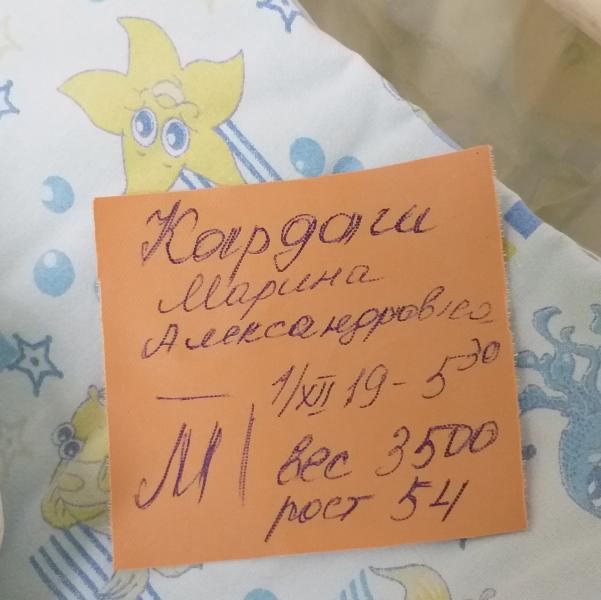 Кардаш
Марина
Александровна
1/XII 19 - 5 30
М
вес 3500
рост 54